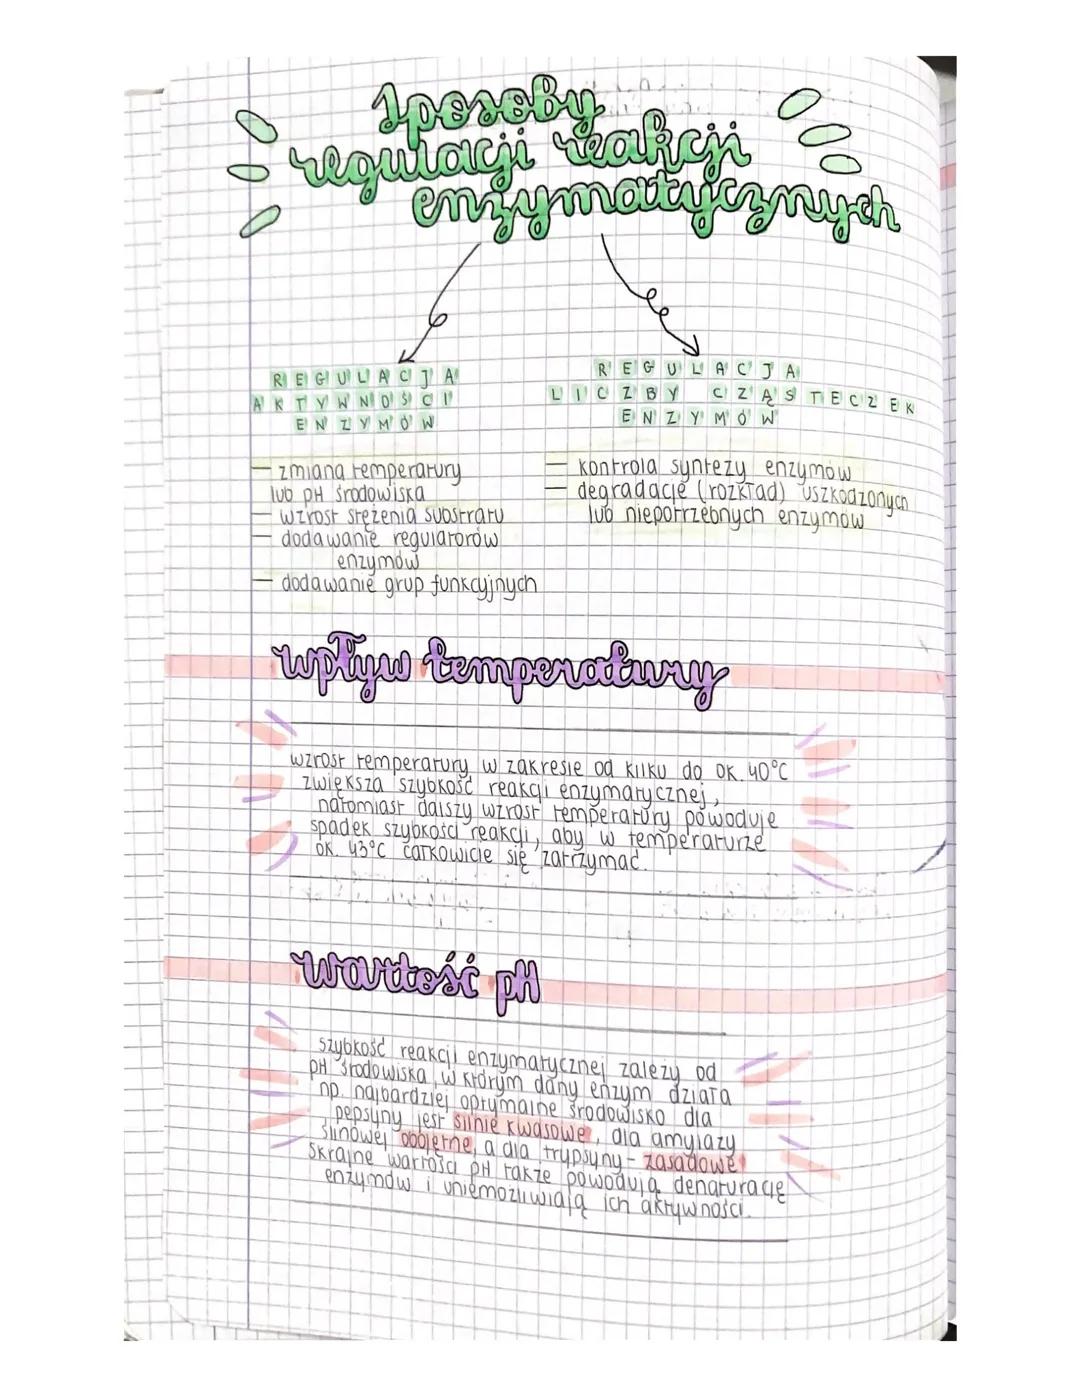 Sposoby
regulacji reakcji
enzymatycznych
REGULACJA
AKTYWNOŚCI
ENZYMÓW
— zmiana temperatury
lub pH środowiska
— wzrost stężenia substratu
— dodawanie regulatorów
enzymów
— dodawanie grup funkcyjnych
REGULACJA
LICZBY CZĄSTECZEK
ENZYMÓW
— kontrola syntezy enzymów
— degradację (rozkład) uszkodzonych
lub niepotrzebnych enzymów
wpływ temperatury
wzrost temperatury w zakresie od kilku do ok. 40°C
zwiększa szybkość reakcji enzymatycznej,
natomiast dalszy wzrost temperatury powoduje
spadek szybkości reakcji, aby w temperaturze
ok. 43°C całkowicie się zatrzymać.
wartość pH
szybkość reakcji enzymatycznej zależy od
pH środowiska, w którym dany enzym działa
np. najbardziej optymalne środowisko dla
pepsyny jest silnie kwasowe, dla amylazy
ślinowej obojętne, a dla trypsyny - zasadowe
Skrajne wartości pH także powodują denaturację
enzymów i uniemożliwiają ich aktywności.